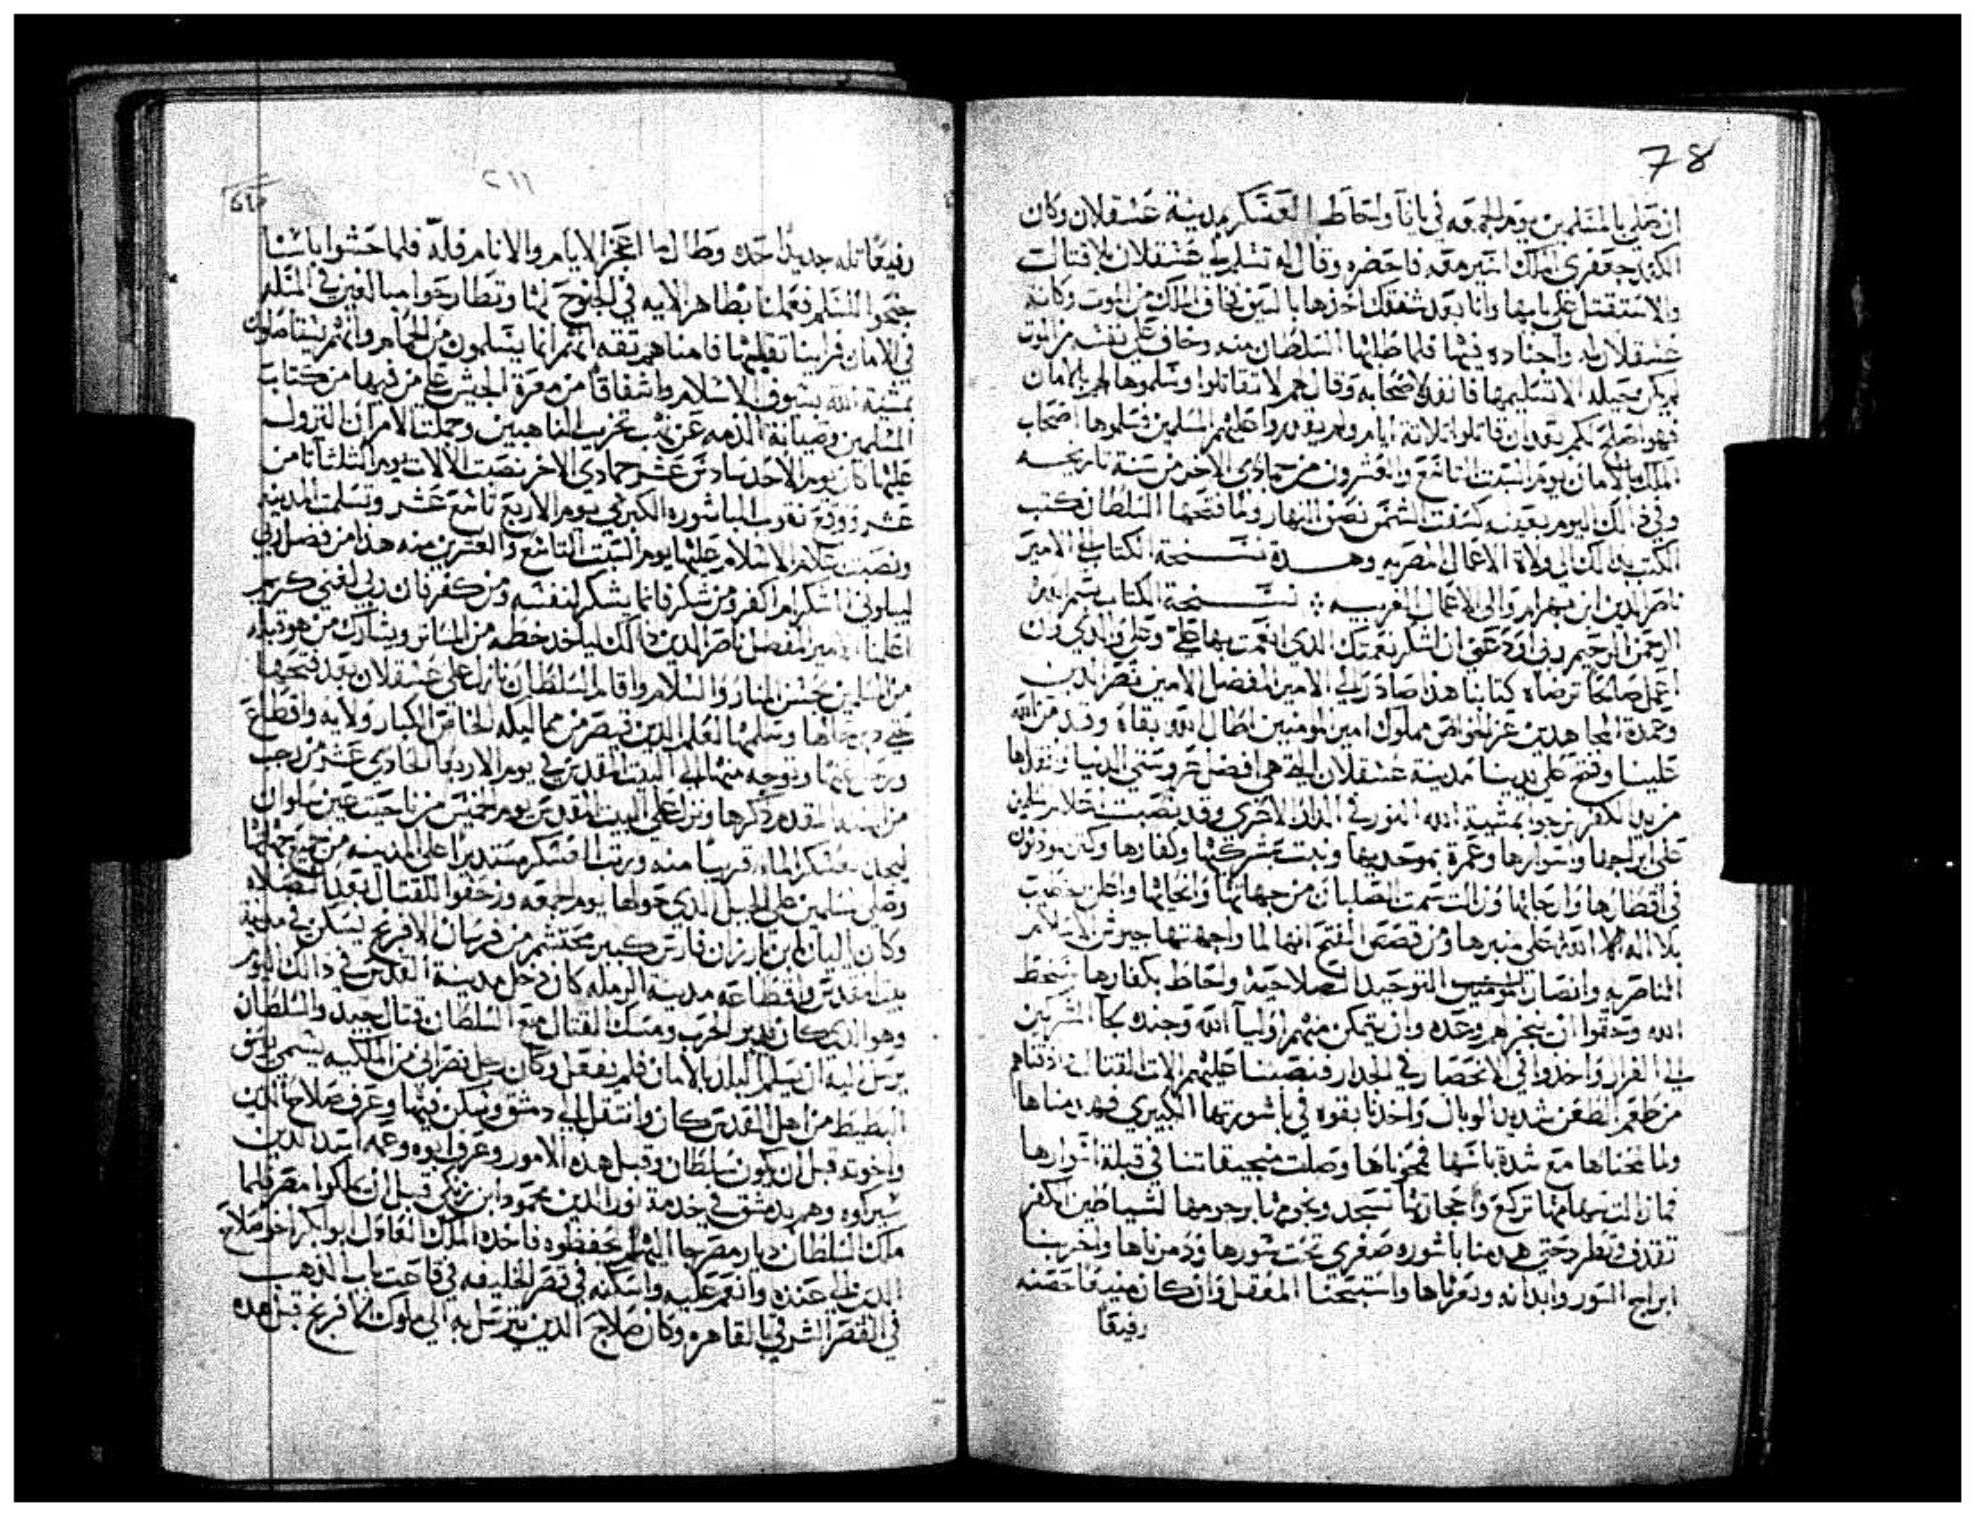 78
ان صلي بالمسلمين يوم الجمعه في يافا واحاط العسكر بمدينة عسقلان وكان
الكند جعفري الملك اسير معه فاحضره وقال له تسلم لي عسقلان بلا قتال
والا ستقتل علي بابها وانا بعد شنقك اخذها بالسيف فخاف الملك من الموت وكانت
عسقلان له واجناده فيها فلما طلبها السلطان منه وخاف علي نفسه من الموت
لم يكن حيله الا تسليمها فانفد لاصحابه وقال لهم لا تقاتلوا وسلموها لهم بالامان
فهو اصلح لكم بعد ان قاتلوا ثلاثة ايام ولم يقدروا علي المسلمين فسلموها اصحاب
الملك بالامان يوم السبت التاسع والعشرون من جمادي الاخر من سنة تاريخه
وفي ذالك اليوم بعينه كسفت الشمس نصف النهار ولما فتحها السلطان كتب
الكتب بذالك الي ولاة الاعمال المصريه وهذه نسخة الكتاب الي الامير
ناصر الدين ابن بهرام والي الاعمال الغربيه نسخة الكتاب بسم الله
الرحمن الرحيم ربي اوزعني ان اشكر نعمتك الدي انعمت بها علي وعلي والدي وان
اعمل صالحا ترضاه كتابنا هذا صادر الي الامير المفضل الامين نصر الدين
وعمدة المجاهدين عز الخواص مملوك امير المومنين اطال الله بقاه وقد من الله
علينا وفتح علي يدينا مدينة عسقلان التي هي افضل
من يد الكفر نرجو بمشية الله الفوز في الدار الاخري وقد نصبت
علي ابراجها واسوارها وعمرة بموحديها ونبت بمشركيها وكفارها وكبر موذنون
في اقطارها وارجايها وزالت سمت الصلبان من جهاتها وانحايها واعلن
بلا اله الا الله علي منبرها ومن قصص الفتح انها لما واجهتها جيوش الاسلام
الناصريه وانصار التوحيد الصلاحية واحاط بكفارها سخط
الله وحققوا ان ينجزهم وعده وان يتمكن منهم اوليا الله وجنده لجا المشركين
الي الفرار واخدوا في الانحصار في الجدار فنصبنا عليهم الات القتال
من طعم الطعن شديد الوبال واخدنا بقوه في باشورتها الكبيري فهدمناها
ولما فتحناها مع شدة باسها وصلت منجيقاتنا في قبلة اسوارها
فما زالت سهامها تركع واحجارها تسجد ونجومها برجومها لشياطين الكفر
تقدف وتطرد حتي هدمنا باشوره صغري تحت سورها ودمرناها واخربنا
ابراج السور وابدانه ودمرناها واستبحنا المعقل وان كان منيعا حصنه
رفيعا
٢١١
رفيعا تله جديدا حده وطال ما اعجز الايام والانام فله فلما حشوا باسنا
جنحوا للسلم فعملنا بظاهر الايه في الجنوح لها
في الامان فراينا تقليها فامناهم ثقه انهم انما يسلمون من الحمام وانهم يستاصلون
بمشية الله بسيوف الاسلام واشفاقا من معرة الجيش علي من فيها من كتاب
المسلمين وصيانة الذمه عن نهب تخرب الناهبين وجملت الامر ان النزول
عليها كان يوم الاحد سادس عشر جمادي الاخر نصبت الالات يوم الثلثا ثامن
عشر ووقع نقوب الباشوره الكبري يوم الاربع تاسع عشر وتسلمت المدينه
ونصبت علام الاسلام عليها يوم السبت التاسع والعشرين منه هذا من فضل ربي
ليبلوني ااشكر ام اكفر ومن شكر فانما يشكر لنفسه ومن كفر فان ربي لغني كريم
اعلمنا الامير المفضل ناصر الدين ذالك لياخد حظه من المسار ويشارك من هو قبله
من المسلمين بحسن المنار والسلام واقام السلطان نازل علي عسقلان بعد فتحها
وسلمها لعلم الدين قيصر من مماليكه الخاص الكبار ولايه واقطاع
ورحل عنها وتوجه منها الي البيت المقدس في يوم الاربعا الحادي عشر من رجب
من السنه المقدم ذكرها ونزل علي البيت المقدس يوم الخميس من ناحيت عين سلوان
ليجد العسكر الماء قريبا منه ورتب العسكر مستديرا علي المدينه من جميع جهاتها
وصلي المسلمين علي الجبل الدي حولها يوم الجمعه وزحفوا للقتال بعد الصلاه
وكان اليان ابن بارزان فارس كبير محتشم من فرسان الافرنج يسكن في مدينة
بيت المقدس واقطاعه مدينة الرمله كان دخل مدينة القدس في ذالك اليوم
وهو الدي كان يدير الحرب ومسك القتال مع السلطان قتال جيد والسلطان
يرسل اليه ان يسلم البلد بالامان فلم يفعل وكان رجل نصراني من الملكيه يسمي يوسف
البطيط من اهل القدس كان وانتقل الي دمشق وسكن فيها وعرف صلاح الدين
واخوته قبل ان يكون سلطان وقبل هده الامور وعرف ابوه وعمه اسد الدين
شيركوه وهم بدمشق في خدمة نور الدين محمود ابن زنكي قبل ان يملكوا مصر فلما
ملك السلطان ديار مصر جا اليهم ليحفظوه فاخده الملك العادل ابو بكر اخو صلاح
الدين الي عنده وانعم عليه واسكنه في قصر الخليفه في قاعت باب الدهب
في القصر الشرقي بالقاهره وكان صلاح الدين يترسل به الي ملوك الافرنج قبل هده